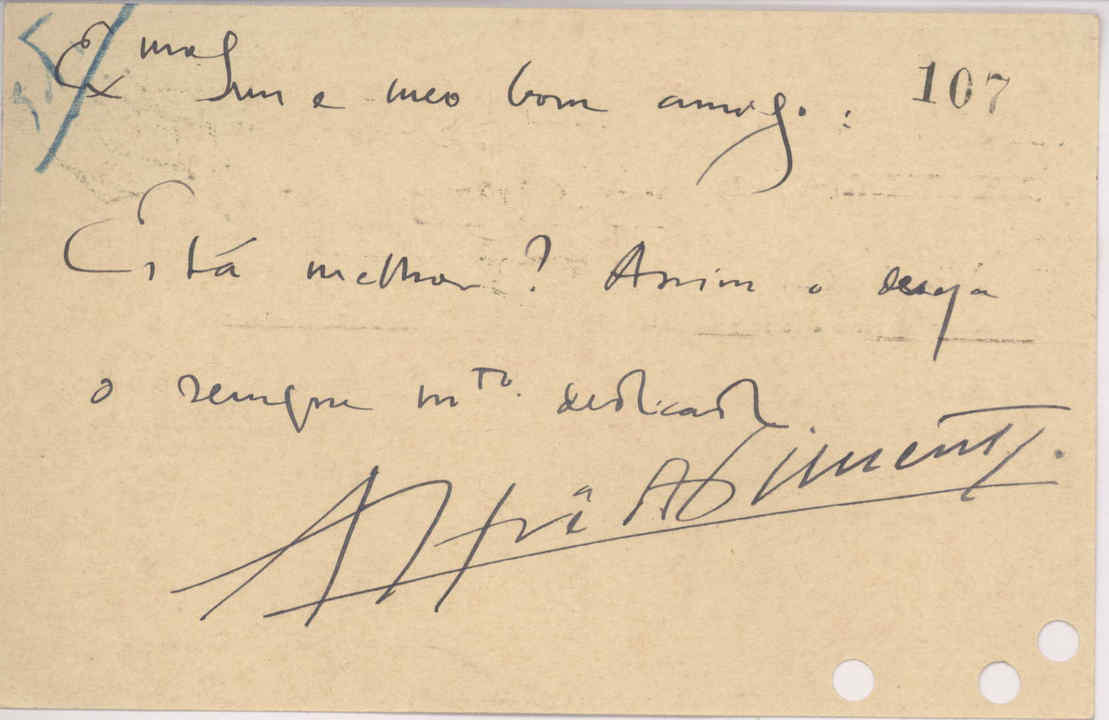 Exmo Snr e meu bom amigo: 107
Está melhor? Assim o deseja
o sempre mto. dedicado
Alfredo Pimenta.